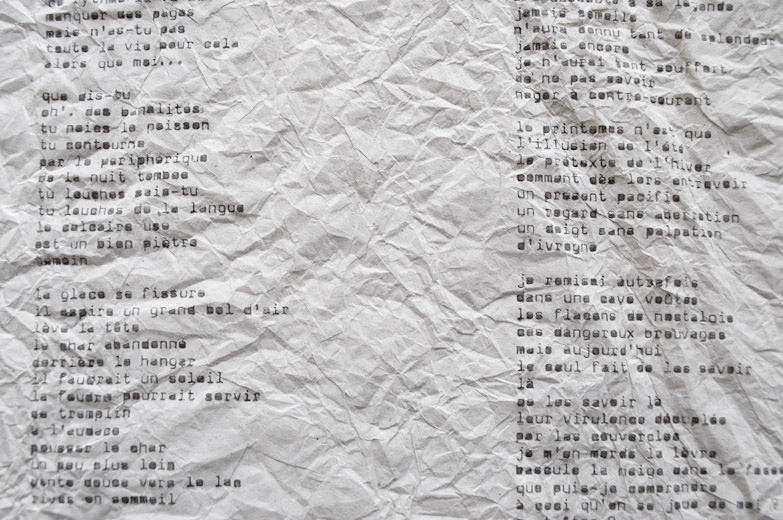 manquer des pages
mais n'as-tu pas
toute la vie pour cela
alors que moi...
que dis-tu
oh'. des banalités
tu noies le poisson
tu contourne
par le périphérique
de la nuit tombée
tu louches sais-tu
tu louches de la langue
le calcaire use
est un bien piètre
témoin
la glace se fissure
il aspire un grand bol d'air
lève la tête
le char abandonné
derrière le hangar
il faudrait un soleil
la foudre pourrait servir
de tremplin
à l'audace
pousser le char
un peu plus loin
pente douce vers le lac
rives en sommeil
jamais semelle
n'aura connu tant de splendeur
jamais encore
je n'aurai tant souffert
de ne pas savoir
nager à contre-courant
le printemps n'est que
l'illusion de l'été
le prétexte de l'hiver
comment dès lors entrevoir
un présent pacifié
un regard sans aberration
un doigt sans palpation
d'ivrogne
je remisai autrefois
dans une cave voûtée
les flacons de nostalgie
ces dangereux breuvages
mais aujourd'hui
le seul fait de les savoir
là
de les savoir là
leur virulence décuplée
par les couvercles
je m'en mords la lèvre
bascule la neige dans le
que puis-je comprendre
à ceci qu'en se joue de moi